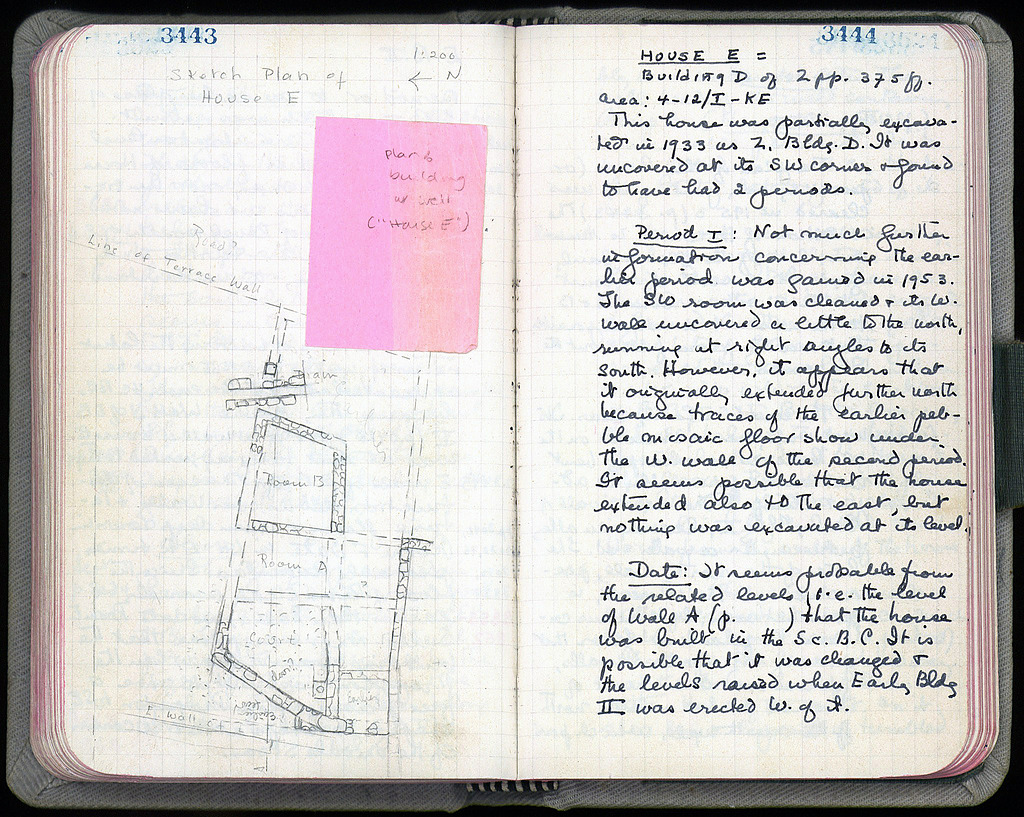 3443
1:200
← N
Sketch Plan of
House E
Plan &
building
w well
("House E")
Road?
Line of Terrace Wall
Drain
Room B
Room A
?
Court
E. Wall of
3444
HOUSE E =
Building D of Z pp. 375ff.
Area: 4-12/I-KE
This house was partially excava-
ted in 1933 as Z, Bldg. D. It was
uncovered at its SW corner & found
to have had 2 periods.
Period I: Not much further
information concerning the ear-
lier period was gained in 1953.
The SW room was cleaned & its W.
wall uncovered a little to the north,
running at right angles to its
south. However, it appears that
it originally extended further north
because traces of the earlier peb-
ble mosaic floor show under
the W. wall of the second period.
It seems possible that the house
extended also to the east, but
nothing was excavated at its level.
Date: It seems probable from
the related levels (i.e. the level
of Wall A (p. ) that the house
was built in the 5 c. B.C. It is
possible that it was changed &
the levels raised when Early Bldg
II was erected W. of it.